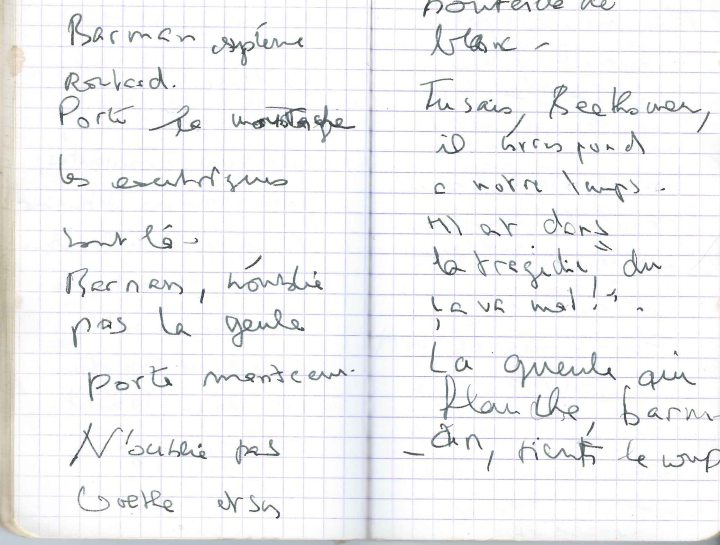 Barman
routard.
Porte la moustache
les excentriques
sont là.
Barman, n'oublie
pas la geule
porte manteau.
N'oublie pas
Goethe et sa
bouteille de
blanc -
Tu sais, Beethoven,
il correspond
a notre temps.
est dans
la tragédie, du
ça va mal!".
La gueule qui
flanche, barm-
- an, tient le coup